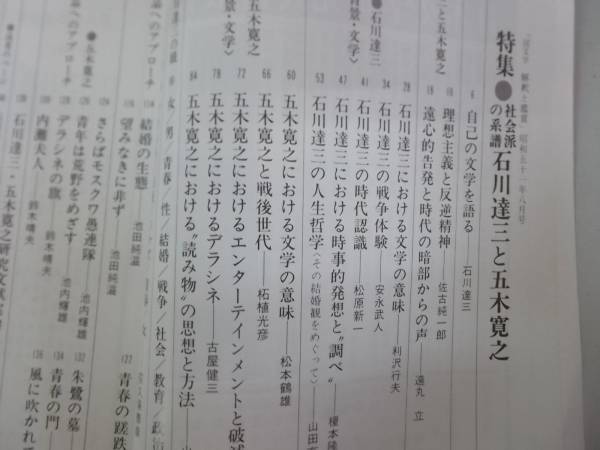 「国文学 解釈と鑑賞」昭和五十一年八月号
特集●社会派の系譜 石川達三と五木寛之
6 自己の文学を語る 石川達三
10 理想主義と反逆精神 佐古純一郎
19 遠心的告発と時代の暗部からの声 遠丸 立
28 石川達三における文学の意味 利沢行夫
34 石川達三の戦争体験 安永武人
41 石川達三の時代認識 松原新一
47 石川達三における時事的発想と〝調べ〟 榎本隆
53 石川達三の人生哲学〈その結婚観をめぐって〉 山田
60 五木寛之における文学の意味 松本鶴雄
66 五木寛之と戦後世代 柘植光彦
72 五木寛之におけるエンターテインメントと破滅
78 五木寛之におけるデラシネ 古屋健三
84 五木寛之における〝読み物〟の思想と方法
女/男/青春/性/結婚/戦争/社会/教育/政治
結婚の生態 池田純溢
望みなきに非ず 池田純溢
122 青春の蹉跌
さらばモスクワ愚連隊 池内輝雄
青年は荒野をめざす 池内輝雄
132 朱鷺の墓
デラシネの旗 鈴木靖夫
134 青春の門
内灘夫人 鈴木靖夫
136 風に吹かれて
石川達三・五木寛之研究文献
と五木寛之
●石川達三
背景・文学〉
五木寛之
景・文学〉
へのアプローチ
●五木寛之
へのアプローチ